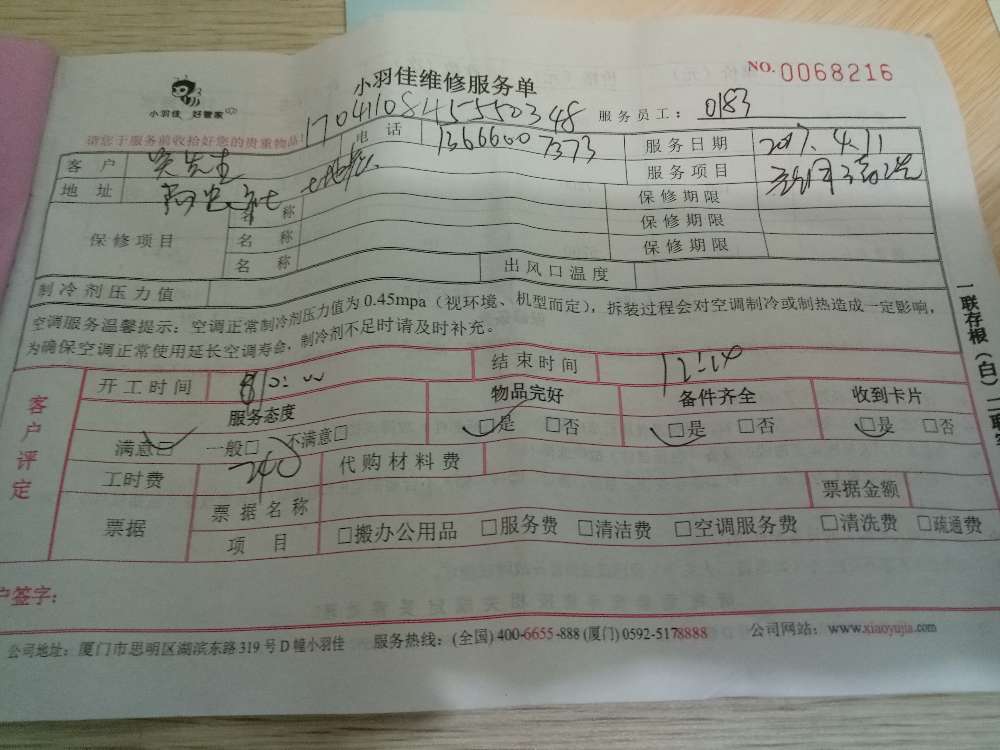 小羽佳 好管家
小羽佳维修服务单
NO. 0068216
1704110845550348
服务员工: 0183
请您于服务前收拾好您的贵重物品!
客户 电话 13666007373 服务日期 2017.4.11
地址 服务项目
保修项目 名称 保修期限
名称 保修期限
名称 保修期限
制冷剂压力值 出风口温度
空调服务温馨提示：空调正常制冷剂压力值为0.45mpa（视环境、机型而定），拆装过程会对空调制冷或制热造成一定影响，
为确保空调正常使用延长空调寿命，制冷剂不足时请及时补充。
一联存根（白）二联客
客户评定
开工时间 结束时间
服务态度 物品完好 备件齐全 收到卡片
满意□ 一般□ 不满意□ □是 □否 □是 □否 □是 □否
工时费 240 代购材料费
票据 票据名称 票据金额
项目 □搬办公用品 □服务费 □清洁费 □空调服务费 □清洗费 □疏通费
户签字:
公司地址：厦门市思明区湖滨东路319号D幢小羽佳 服务热线：(全国) 400-6655-888 (厦门) 0592-5178888 公司网站：www.xiaoyujia.com